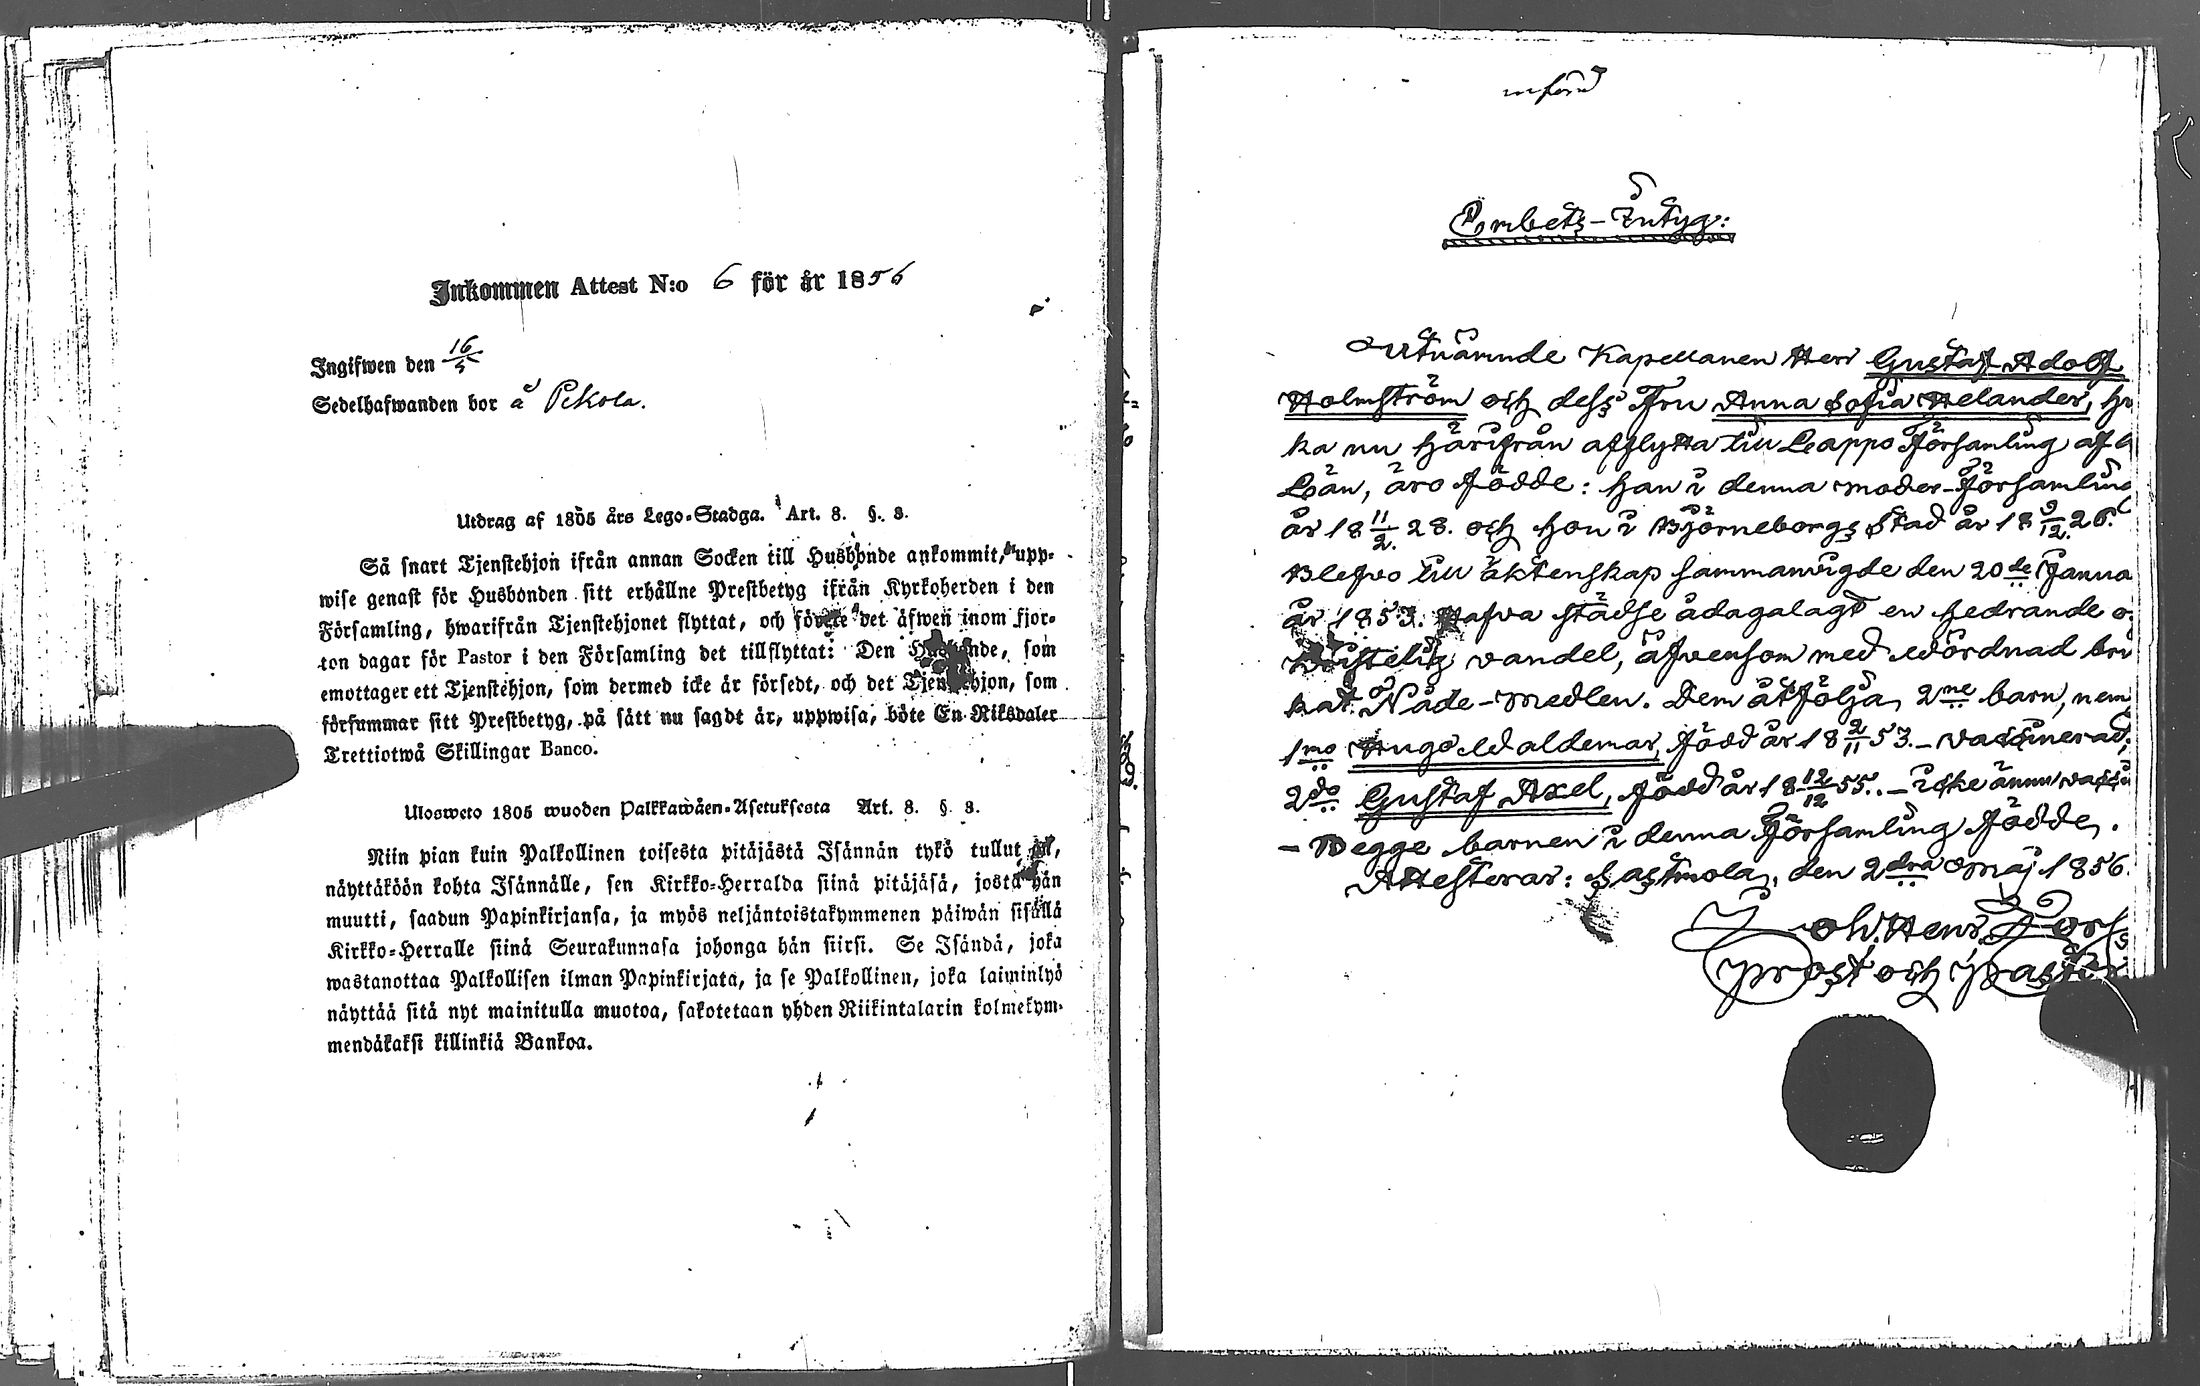 Inkommen Attest N:o 6 för år 1856
Ingifwen den 16/5
Sedelhafwanden bor å Pekola.
Utdrag af 1805 års Lego-Stadga. Art. 8. §. 8.
Så snart Tjenstehjon ifrån annan Socken till Husbonde ankommit, upp-
wise genast för Husbonden sitt erhållne Prestbetyg ifrån Kyrkoherden i den
Församling, hwarifrån Tjenstehjonet flyttat, och förete det äfwen inom fjor-
ton dagar för Pastor i den Församling det tillflyttat: Den Husbonde, som
emottager ett Tjenstehjon, som dermed icke är försedt, och det Tjenstehjon, som
försummar sitt Prestbetyg, på sätt nu sagdt är, uppwisa, böte En Riksdaler
Trettiotwå Skillingar Banco.
Ulosweto 1805 wuoden Palkkawäen-Asetuksesta Art. 8. §. 8.
Niin pian kuin Palkollinen toisesta pitäjästä Isännän tykö tullut on,
näyttäköön kohta Isännälle, sen Kirkko-Herralda siinä pitäjäsä, josta hän
muutti, saadun Papinkirjansa, ja myös neljäntoistakymmenen päiwän sisällä
Kirkko-Herralle siinä Seurakunnasa johonga hän siirsi. Se Isändä, joka
wastanottaa Palkollisen ilman Papinkirjata, ja se Palkollinen, joka laiminlyö
näyttää sitä nyt mainitulla muotoa, sakotetaan yhden Riikintalarin kolmekym-
mendäkaksi killinkiä Bankoa.
införd
Embets-Intyg:
Utnämnde Kapellanen Herr Gustaf Adolf
Holmström och dess Fru Anna Sofia Helander, hv
ka nu härifrån afflytta till Lappo Församling af
Län, äro födde: han i denna moder-Församling
år 18 11/2 28. och hon i Björneborgs Stad år 18 9/12 26.
Blefvo till äktenskap sammanvigde den 20de Janua
år 1853. Hafva städse ådagalagt en hedrande o
Christelig vandel, äfvensom med wördnad bru
kat Nåde-medlen. Dem åtfölja 2ne barn, nem
1mo Hugo Waldemar, född år 18 2/11 53. - vaccinerad;
2do Gustaf Axel, född år 18 12/12 55. - icke ännu vacci
- Begge barnen i denna Församling födde.
Attesterar: Sastmola, den 2dra Maj 1856.
Joh. Henr. Fors
Prost och Pastor